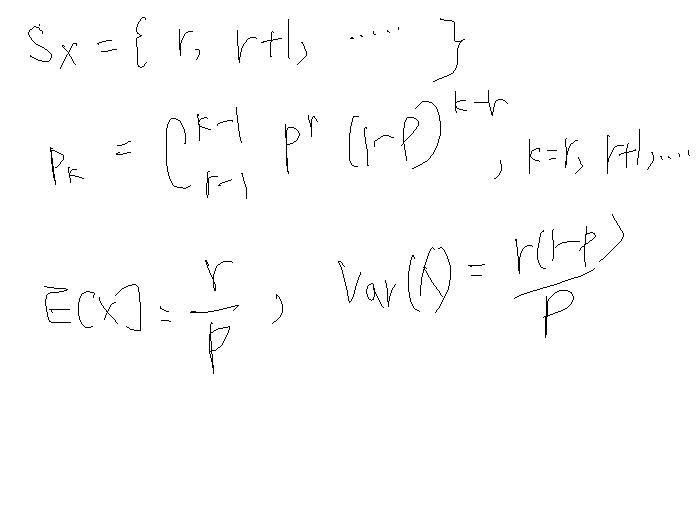 S_X = { r, r+1, ..... }
p_k = C^{k-1}_{r-1} p^r (1-p)^{k-r}, k=r, r+1,....
E[X] = r/p, Var(X) = r(1-p)/p